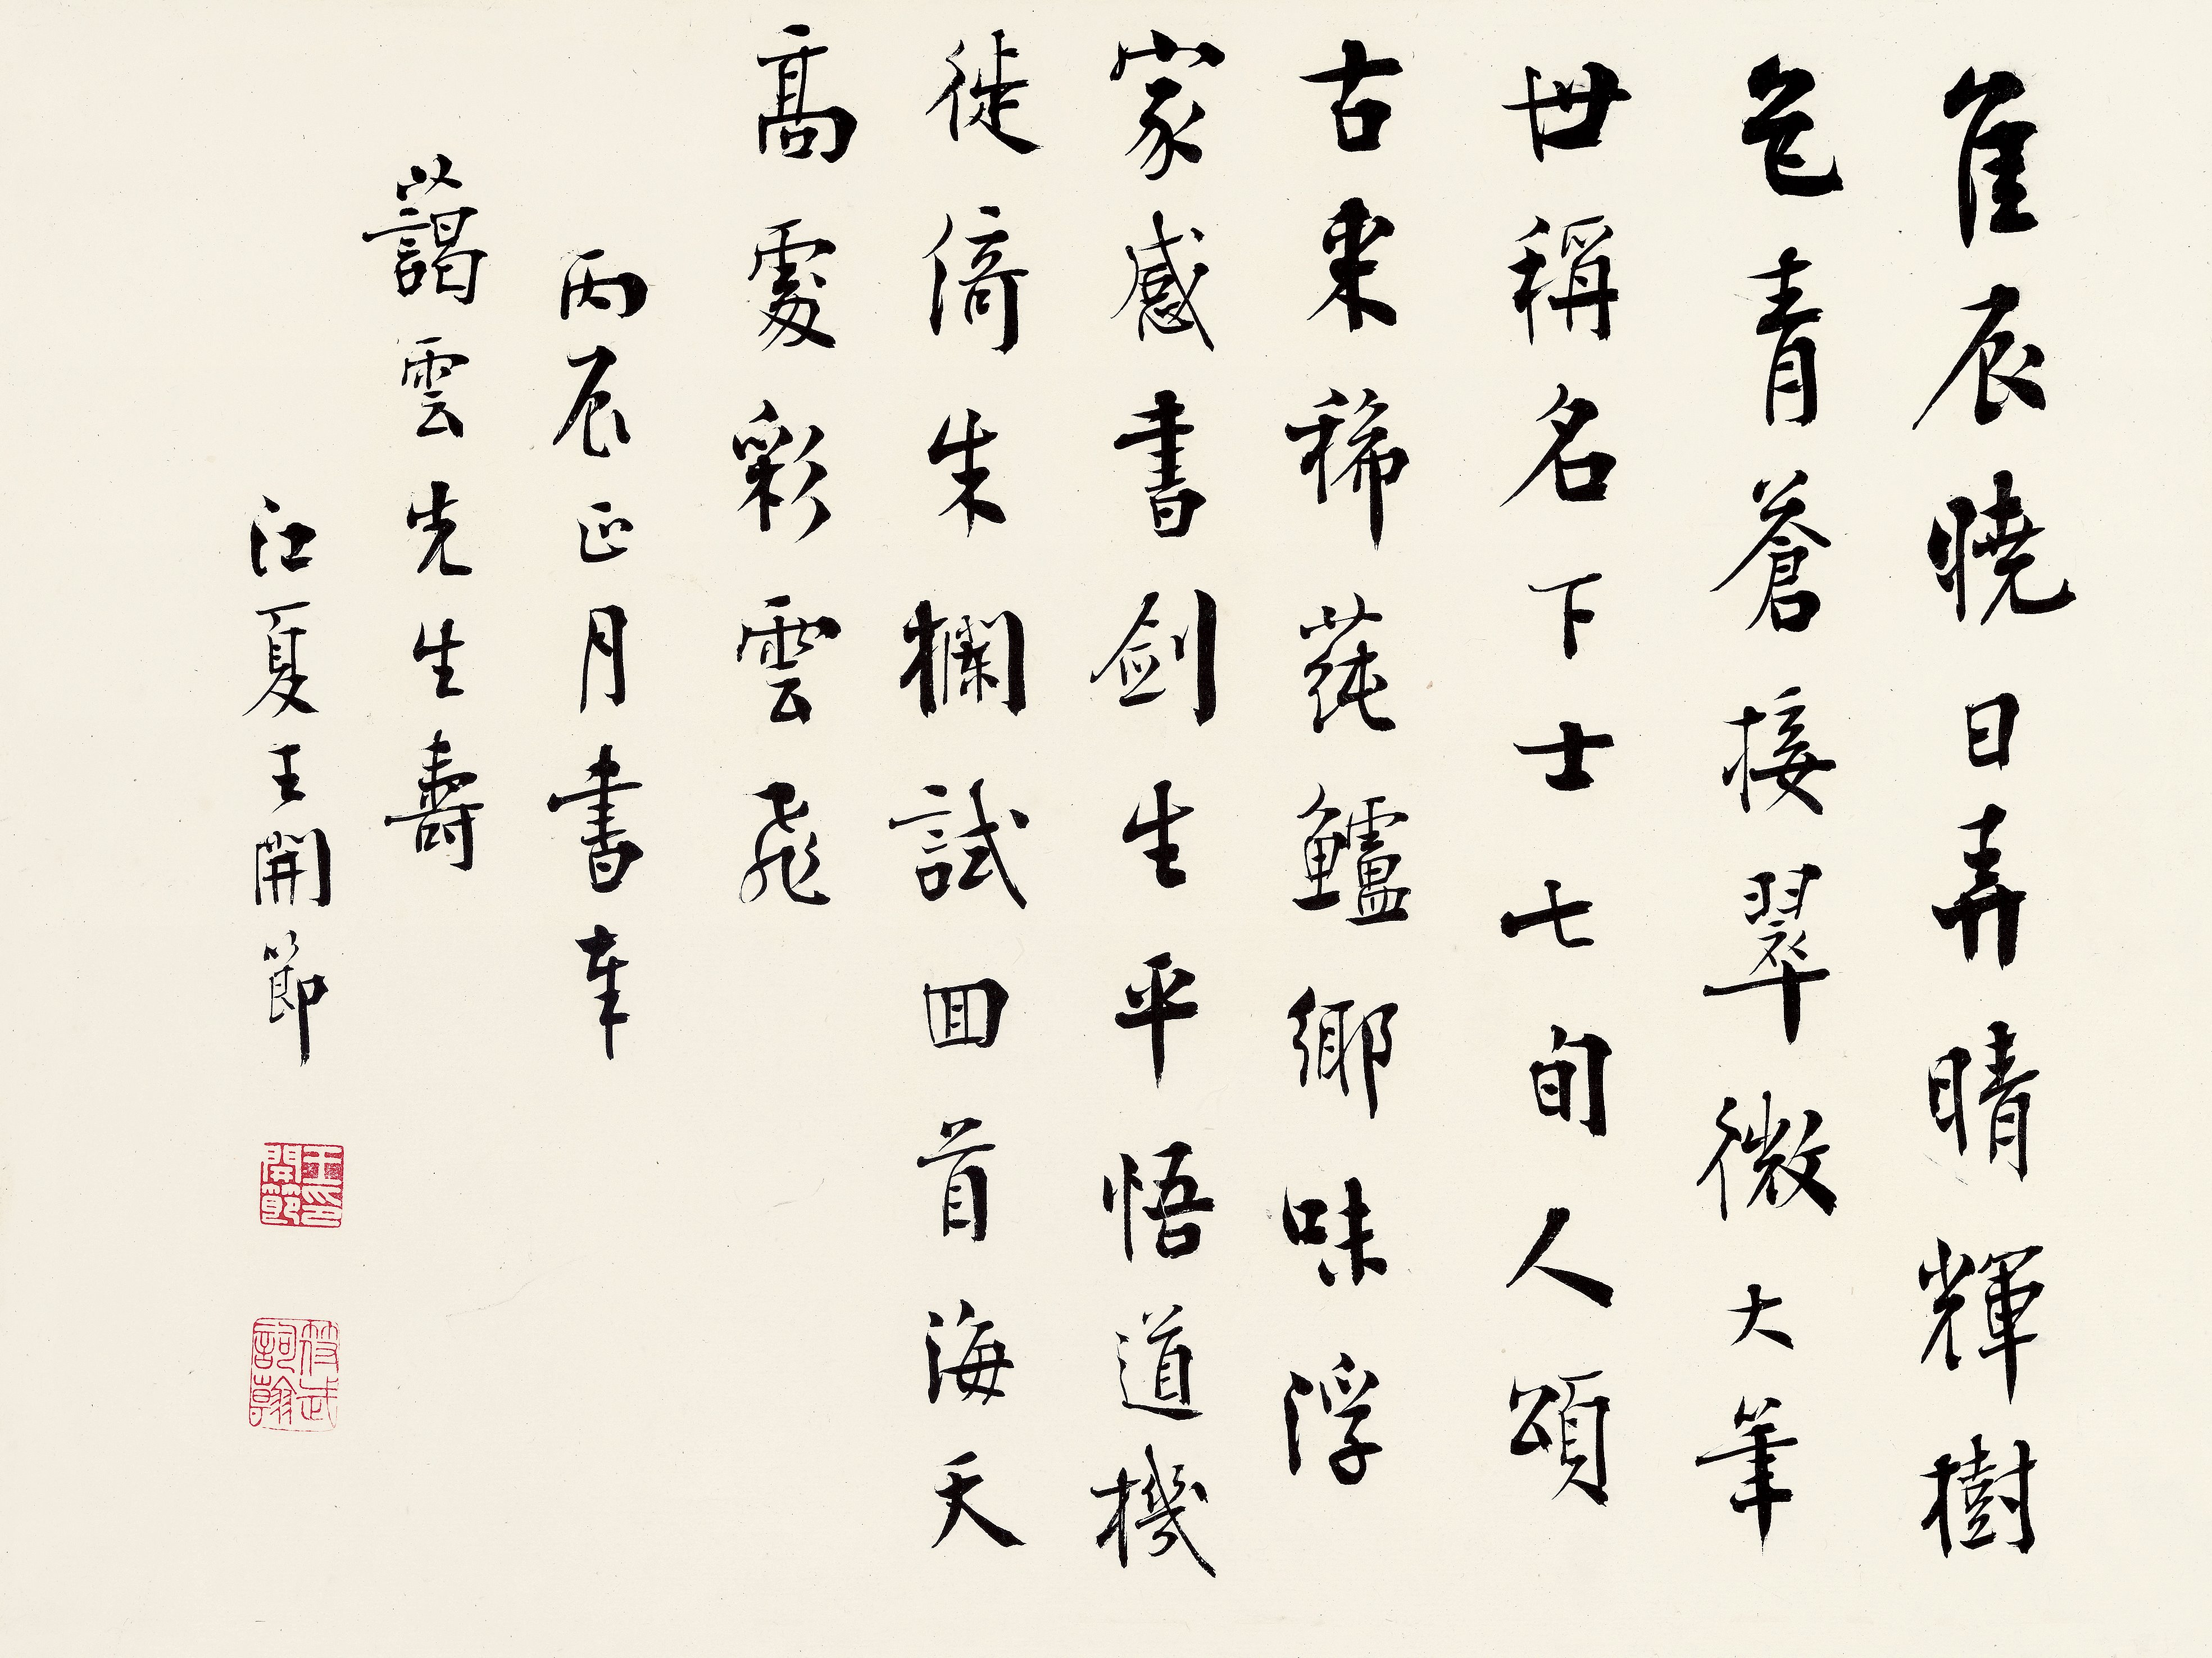 佳辰曉日弄晴輝樹
色青蒼接翠微大筆
世稱名下士七旬人頌
古來稀蒓鱸鄉味浮
家感書劍生平悟道機
徙倚朱欄試囬首海天
高處彩雲飛
丙辰正月書奉
藹雲先生壽
江夏王開節
王印開節
武詞翰